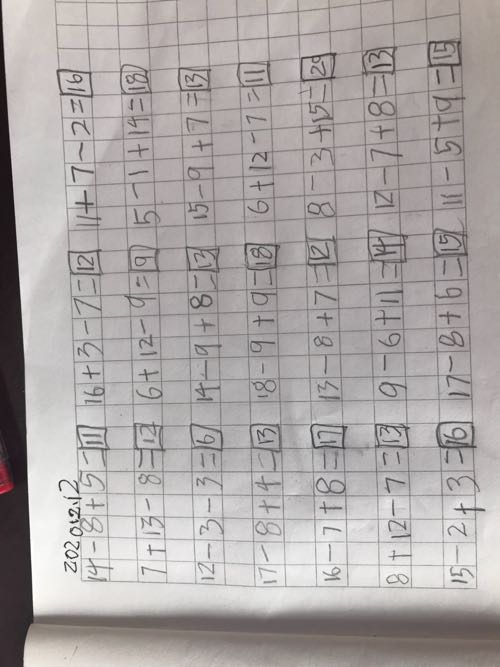 2020.12.12
14-8+5=11 16+3-7=12 11+7-2=16
7+13-8=12 6+12-9=9 5-1+14=18
12-3-3=6 14-9+8=13 15-9+7=13
17-8+4=13 18-9+9=18 6+12-7=11
16-7+8=17 13-8+7=12 8-3+15=29
8+12-7=13 9-6+11=14 12-7+8=13
15-2+3=16 17-8+6=15 11-5+9=15